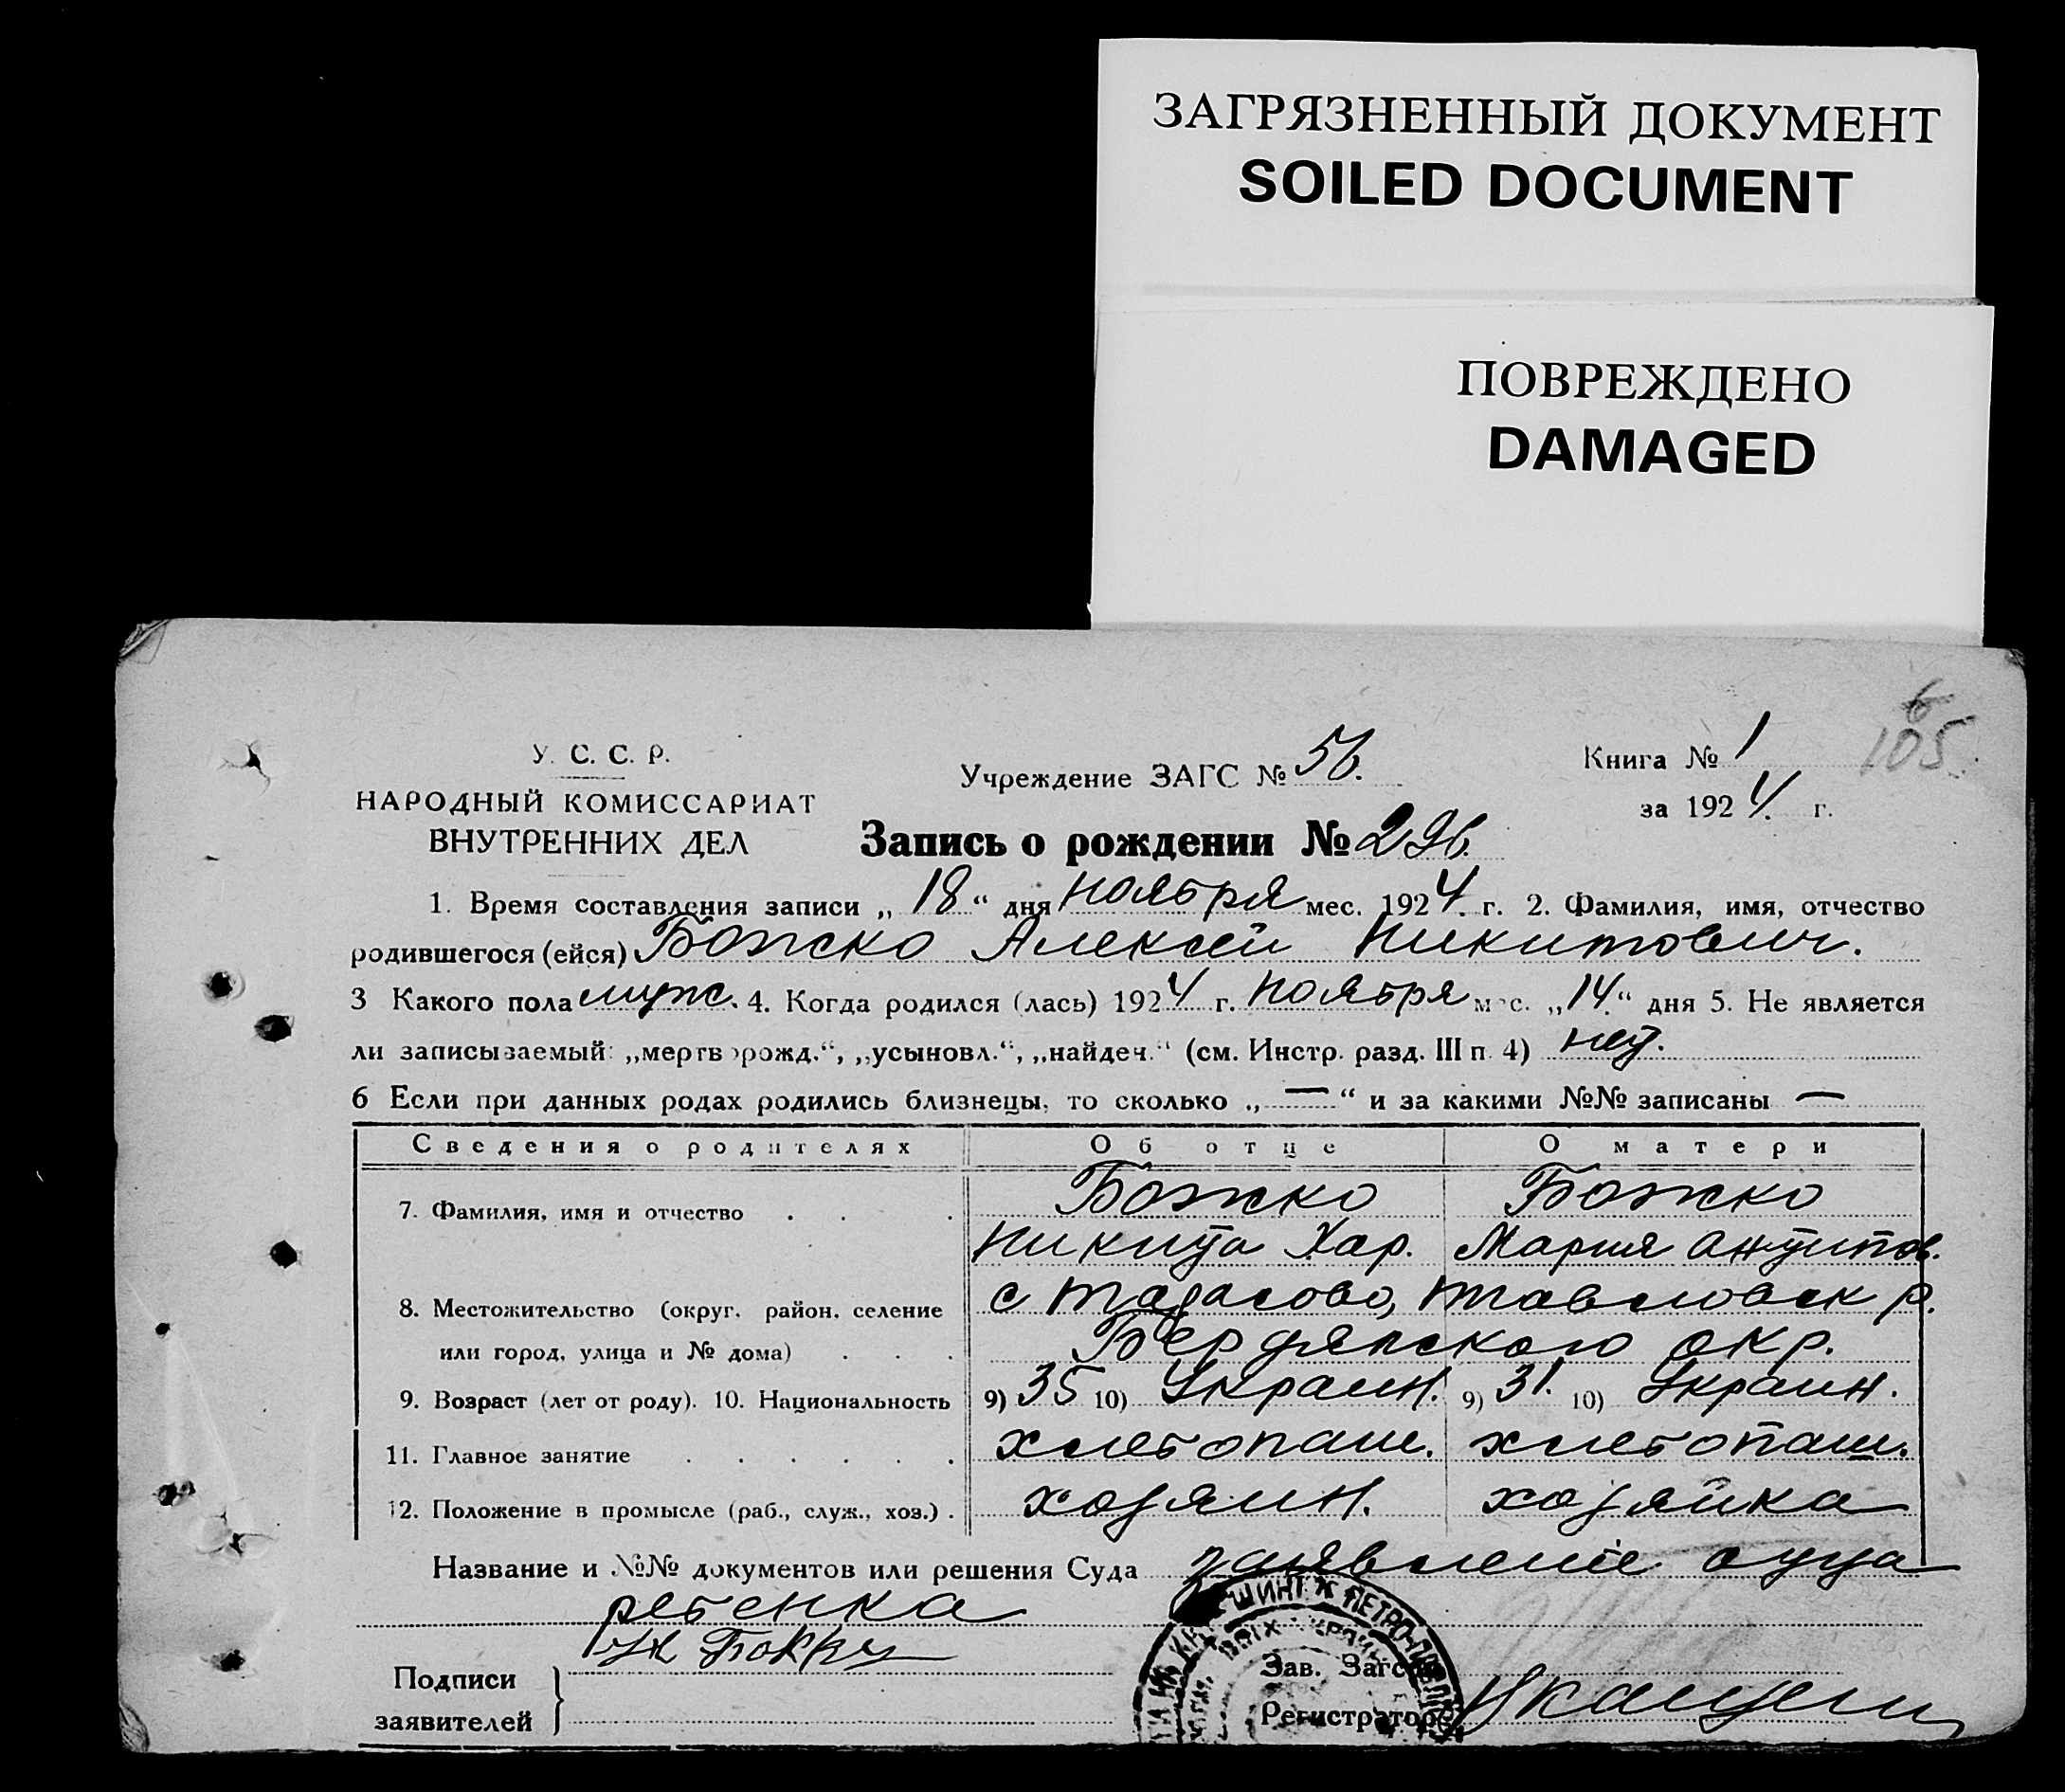 ЗАГРЯЗНЕННЫЙ ДОКУМЕНТ
SOILED DOCUMENT
ПОВРЕЖДЕНО
DAMAGED
6
105
У. С. С. Р.
НАРОДНЫЙ КОМИССАРИАТ
ВНУТРЕННИХ ДЕЛ
Учреждение ЗАГС № 56.
Книга № 1
за 1924. г.
Запись о рождении № 296.
1. Время составления записи „18“ дня ноября мес. 1924. г. 2. Фамилия, имя, отчество
родившегося (ейся) Божко Алексей Никитович.
3 Какого пола муж. 4. Когда родился (лась) 1924 г. ноября мес. „14.“ дня 5. Не является
ли записываемый: „мертворожд.“, „усыновл.“, „найден.“ (см. Инстр. разд. III п. 4) нет.
6 Если при данных родах родились близнецы, то сколько „—“ и за какими №№ записаны —
Сведения о родителях Об отце О матери
7. Фамилия, имя и отчество . . . Божко Божко
Никита Хар. Мария Антипов.
8. Местожительство (округ, район, селение с
или город, улица и № дома) . . . Бердянского окр.
9. Возраст (лет от роду). 10. Национальность 9) 35 10) Украин. 9) 31. 10) Украин.
11. Главное занятие . . . . . . хлебопаш. хлебопаш.
12. Положение в промысле (раб., служ., хоз.) . хозяин. хозяйка
Название и №№ документов или решения Суда заявление отца
ребенка
Подписи
заявителей
Зав. Загсом
Регистратор
ПЕТРО-ПАВЛІ